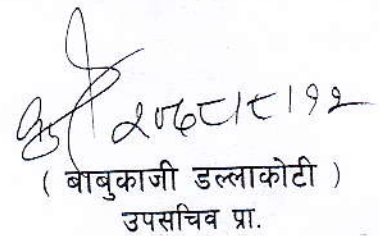 २०७८।८।१२
( बाबुकाजी डल्लाकोटी )
उपसचिव प्रा.